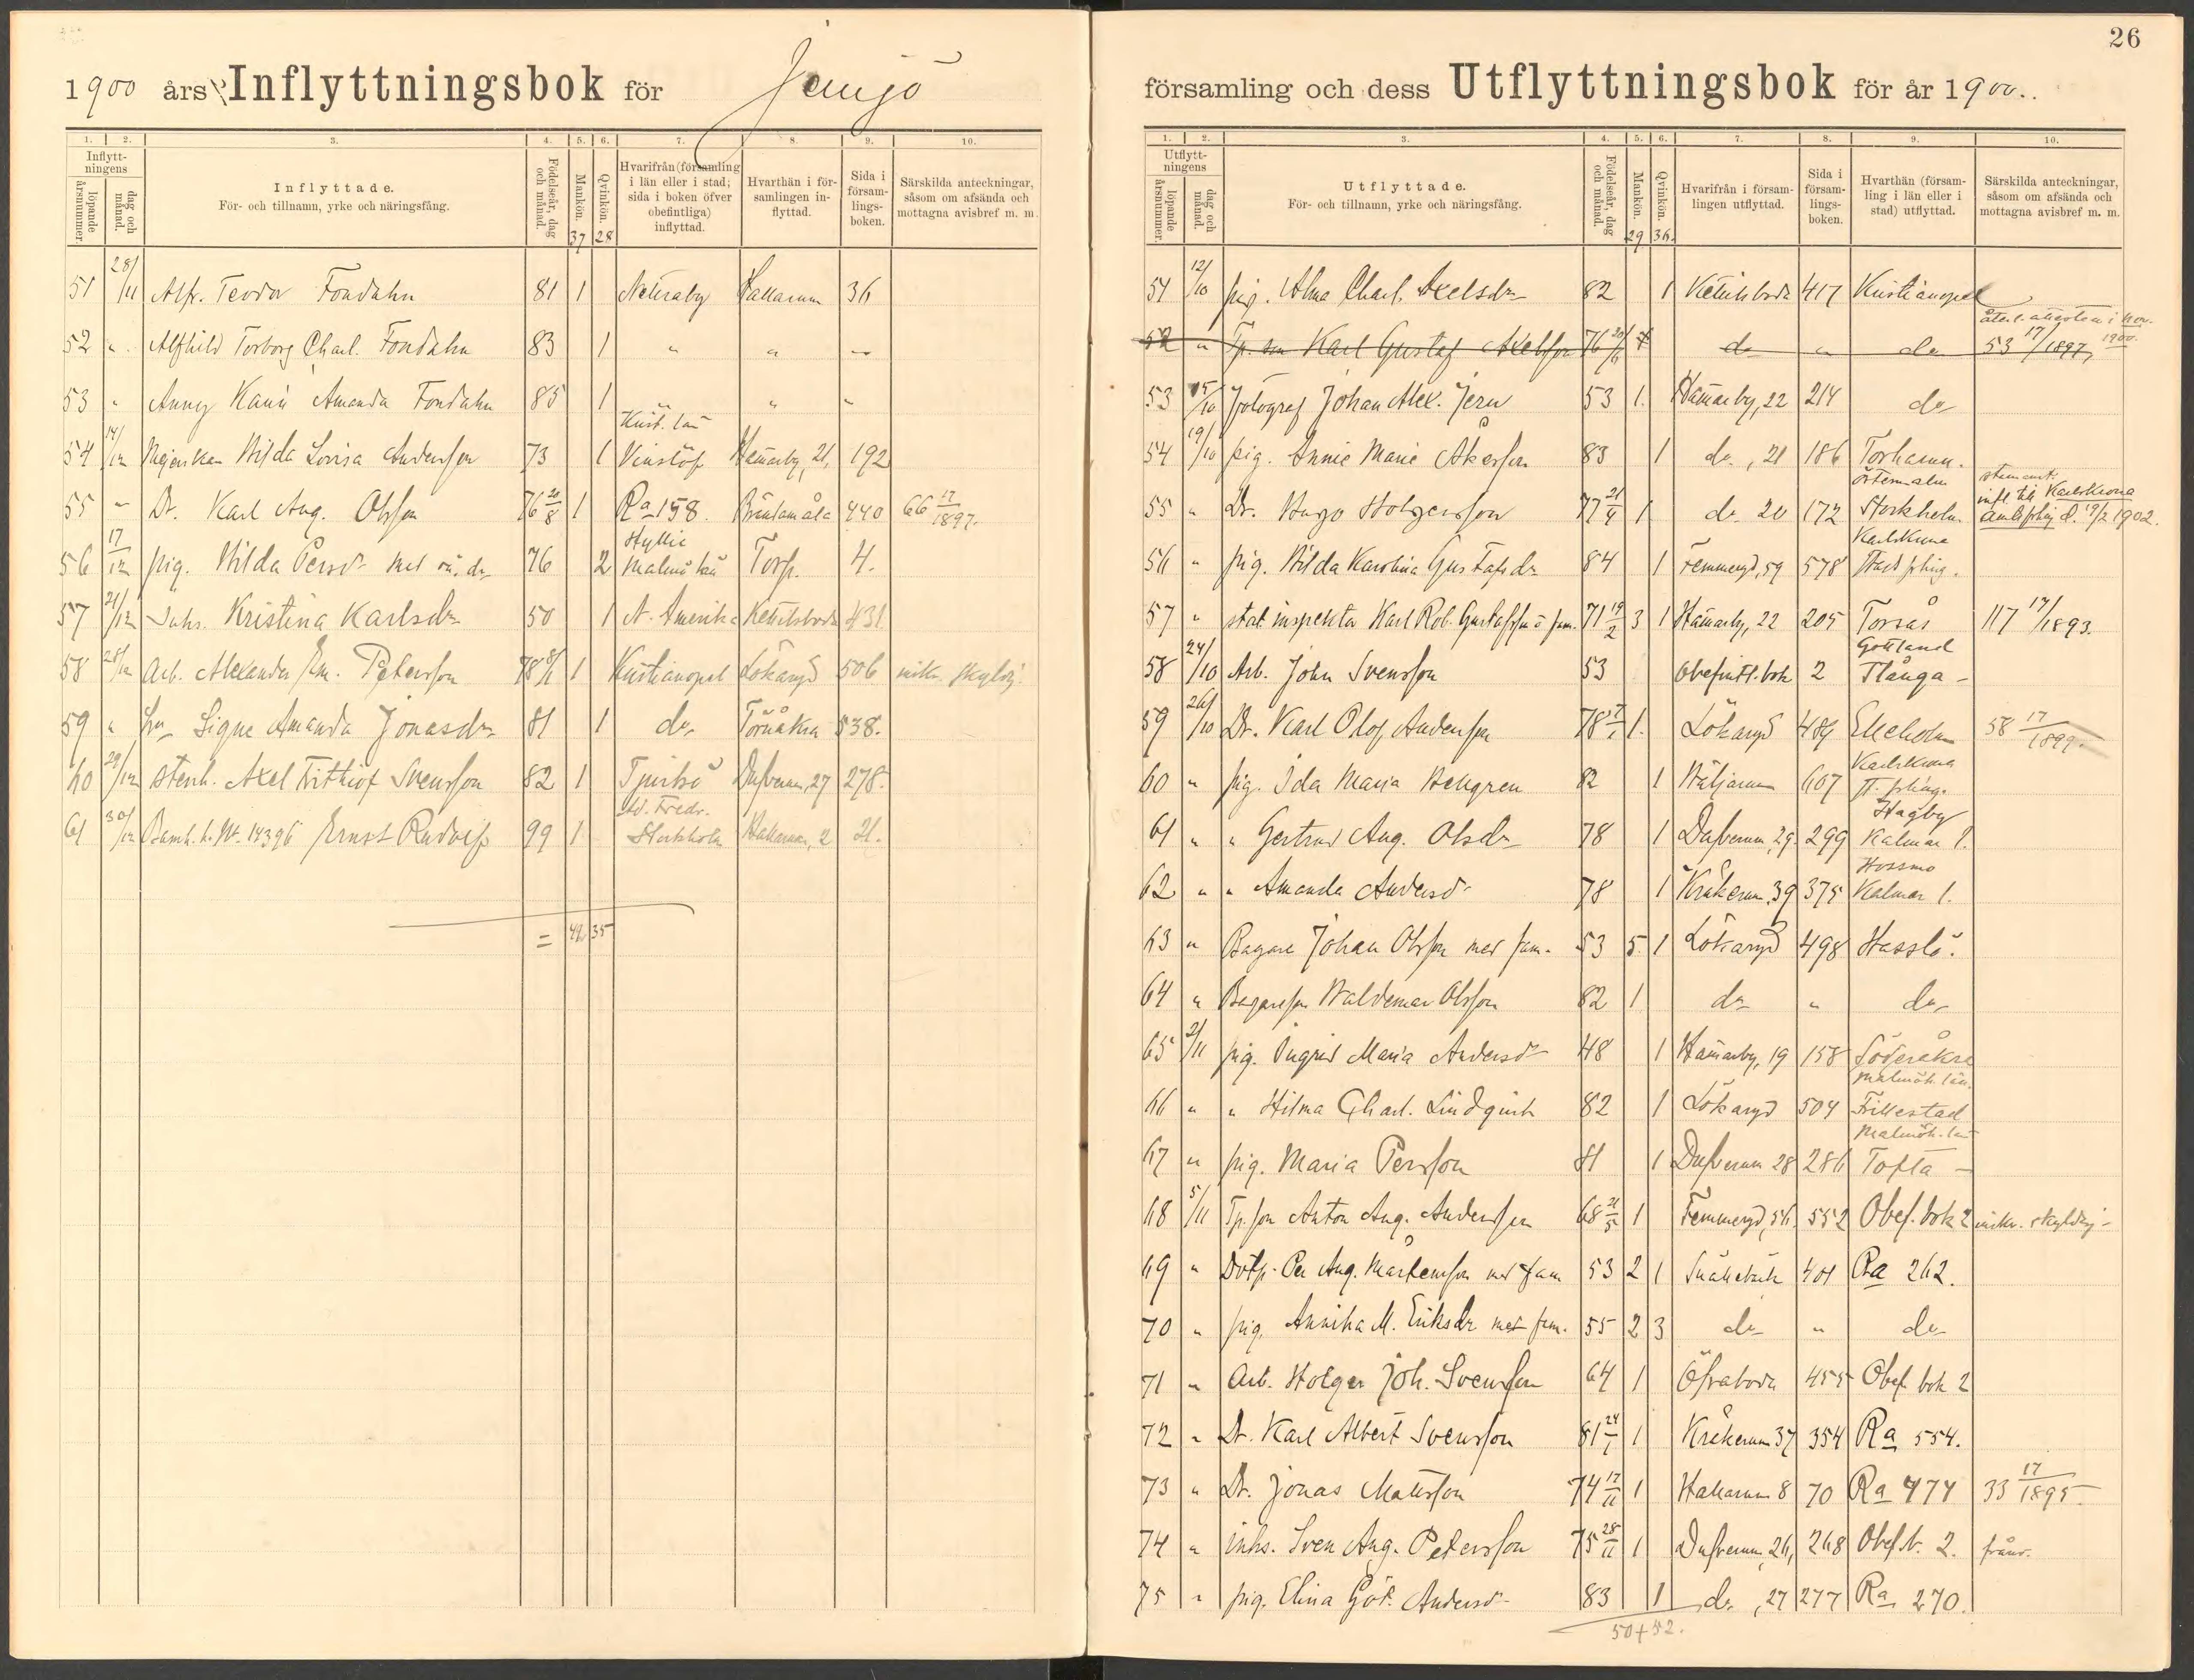 1900 års Inflyttningsbok för Jemjö
1. 2. 3. 4. 5. 6. 7. 8. 9. 10.
Inflyttningens löpande årsnummer. dag och månad. Inflyttade. För- och tillnamn, yrke och näringsfång. Födelseår, dag och månad. Mankön. Qvinkön. Hvarifrån (församling i län eller i stad; sida i boken öfver obefintliga) inflyttad. Hvarthän i församlingen inflyttad. Sida i församlingsboken. Särskilda anteckningar, såsom om afsända och mottagna avisbref m. m.
37 28
51 28/11 Alfr. Teodor Fondahn 81 1 Nettraby Hallarum 36
52 " Alfhild Torborg Charl. Fondahn 83 1 " " "
53 " Anny Karin Amanda Fondahn 85 1 " " "
54 14/12 Mejerskan Hilda Lovisa Andersson 73 1 Krist. län Vinslöf Hamarby, 21, 192
55 " Dr. Karl Aug. Olsson 76 20/8 1 Ra 158. Bröstamåla 440 66 17/1897.
56 17/12 pig. Hilda Persdr med oä. dr 76 2 Hyllie Malmö län Torp. 4.
57 21/12 Inhs. Kristina Karlsdr 50 1 N. Amerika Ketilsboda 431
58 28/12 Arb. Alexander Em. Petersson 78 8/1 1 Kristianopel Lökaryd 506 inskr. skyldig
59 " hu Signe Amanda Jonasdr 81 1 do Törnåkra 538.
60 29/12 stenh. Axel Frithiof Svensson 82 1 Tjurkö Dufverum, 27 278.
61 30/12 Barnh. b. No. 14396 Ernst Rudolf 99 1 Ad. Fredr. Stockholm Hallarum, 2 21.
= 42 35
26
församling och dess Utflyttningsbok för år 1900.
1. 2. 3. 4. 5. 6. 7. 8. 9. 10.
Utflyttningens löpande årsnummer. dag och månad. Utflyttade. För- och tillnamn, yrke och näringsfång. Födelseår, dag och månad. Mankön. Qvinkön. Hvarifrån i församlingen utflyttad. Sida i församlingsboken. Hvarthän (församling i län eller i stad) utflyttad. Särskilda anteckningar, såsom om afsända och mottagna avisbref m. m.
29 36.
51 12/10 pig. Alma Charl. Axelsdr 82 1 Ketilsboda 417 Kristianopel
52 " Tp. son Karl Gustaf Axelsson 76 20/6 1 do " do 53 17/1897, återl. attesten i nov. 1900.
53 15/10 Fotograf Johan Alex. Jern 53 1. Hamarby, 22 214 do
54 19/10 pig. Annie Marie Åkesson 83 1 do, 21 186 Torhamn.
55 " Dr. Hugo Holgersson 77 21/4 1 do 20 172 Östermalm Stockholm infl. till Karlskrona amlsfsing d. 19/2 1902.
56 " pig. Hilda Karolina Gustafsdr 84 1 Femmeryd, 59 578 Karlskrona Stads fsing.
57 " stat. inspektor Karl Rob. Gustafsson o fam. 71 19/2 3 1 Hamarby, 22 205 Torsås 117 17/1893.
58 24/10 Arb. John Svensson 53 Obefintl. bok 2 Gottland Stånga
59 26/10 Dr. Karl Olof Andersson 78 17/1 1. Lökaryd 484 Elleholm 58 17/1899.
60 " pig. Ida Maria Hellgren 82 1 Häljarum 607 Karlskrona st. fsing.
61 " " Gertrud Aug. Olsdr 78 1 Dufverum, 29. 299 Hagby Kalmar l.
62 " " Amanda Andersdr 78 1 Kråkerum, 39 375 Hossmo Kalmar l.
63 " Bagare Johan Olsson med fam. 53 5 1 Lökaryd 498 Hasslö.
64 " Bagareson Waldemar Olsson 82 1 do " do
65 2/11 pig. Ingrid Maria Andersdr 48 1 Hamarby, 19 158 Söderåkra
66 " " Hilma Charl. Lindqvist 82 1 Lökaryd 504 Malmöh. län. Fillestad
67 " pig. Maria Persson 81 1 Dufverum 28 286 Malmöh. län Tofta
68 5/11 Tp. son Anton Aug. Andersson 68 21/5 1 Femmeryd, 56 552 Obef. bok 2 inskr. skyldig
69 " Dvtp. Per Aug. Mårtensson med fam 53 2 1 Snäckebäck 401 Ra 262.
70 " pig. Annika M. Eriksdr med fam. 55 2 3 do " do
71 " Arb. Holger Joh. Svensson 64 1 Öfraboda 455 Obef. bok 2
72 " Dr. Karl Albert Svensson 81 24/1 1 Kråkerum 37 354 Ra 554.
73 " Dr. Jonas Matsson 74 17/11 1 Hallarum 8 70 Ra 474 33 17/1895.
74 " inhs. Sven Aug. Petersson 75 28/11 1 Dufverum, 26, 268 Obef. b. 2. frånv.
75 " pig. Elina Göt. Andersdr 83 1 do, 27 277 Ra 270.
50 + 52.